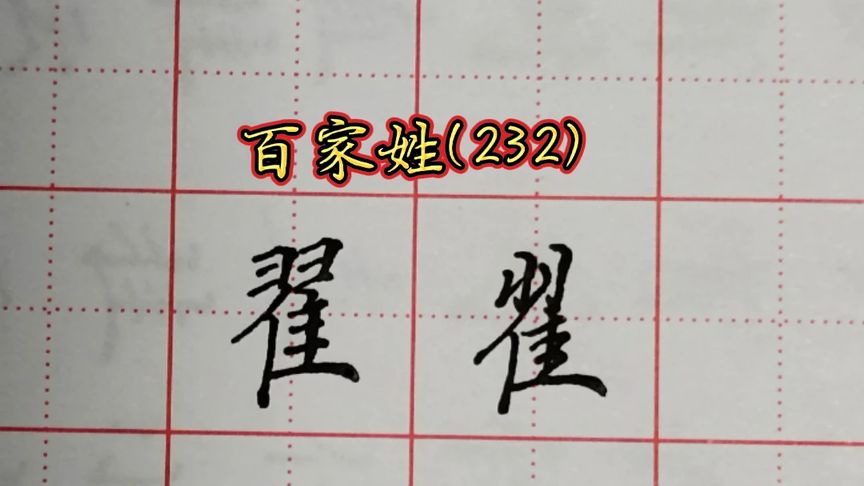 百家姓(232)
翟 翟